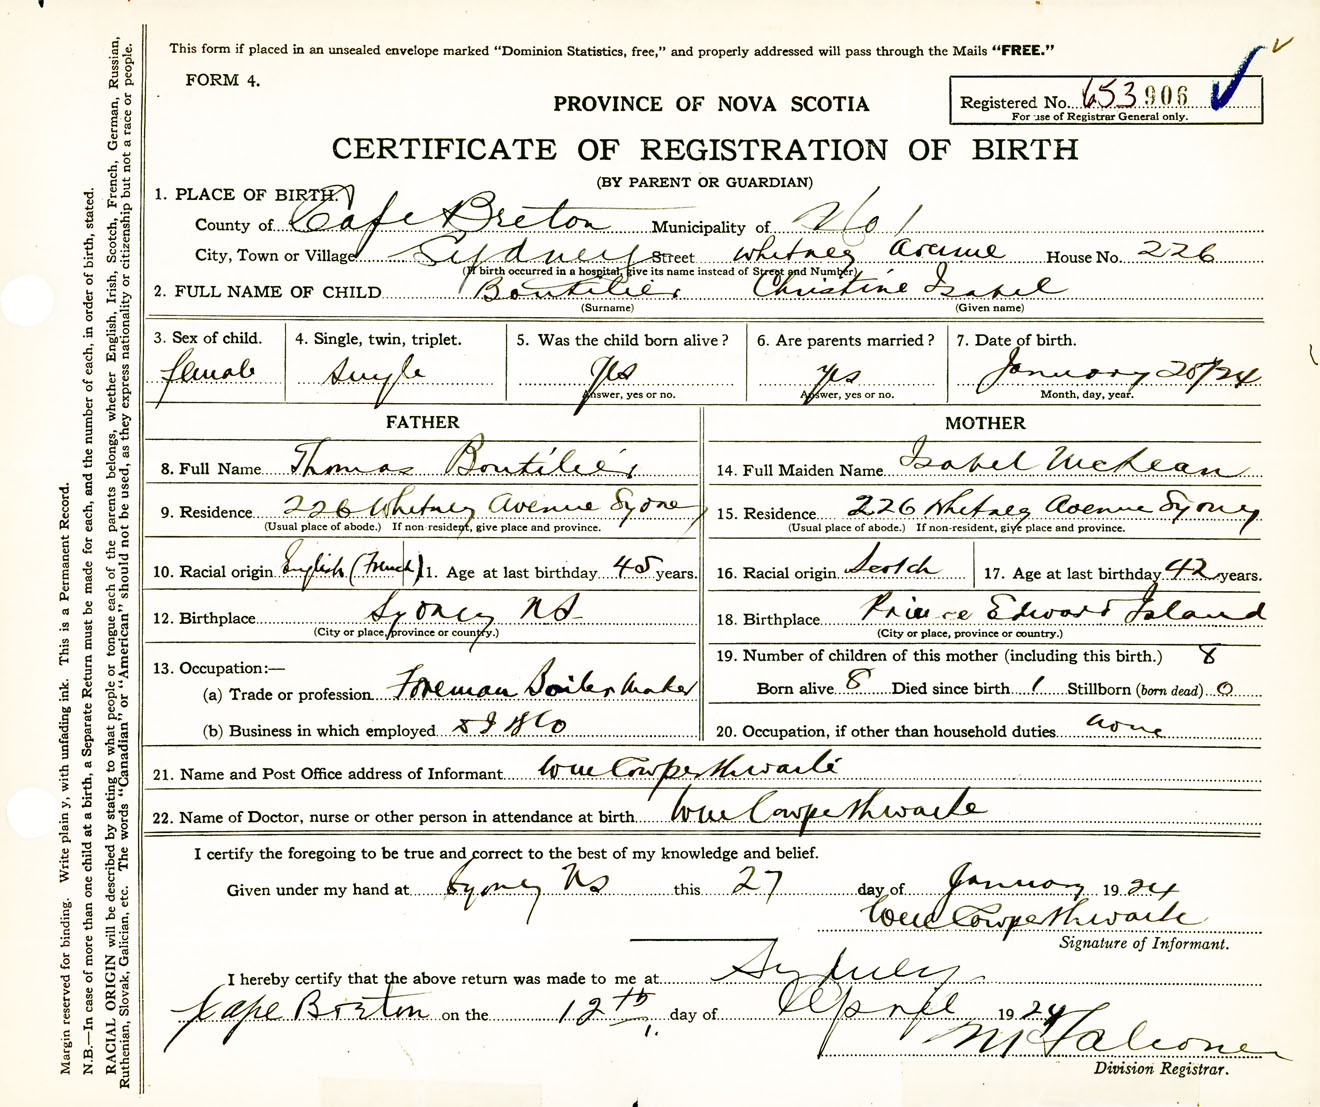 This form if placed in an unsealed envelope marked "Dominion Statistics, free," and properly addressed will pass through the Mails "FREE."
FORM 4.
Registered No. 653906
For use of Registrar General only.
PROVINCE OF NOVA SCOTIA
CERTIFICATE OF REGISTRATION OF BIRTH
(BY PARENT OR GUARDIAN)
1. PLACE OF BIRTH.
County of Cape Breton Municipality of No 1
City, Town or Village Sydney Street Whitney Avenue House No. 226
(If birth occurred in a hospital, give its name instead of Street and Number)
2. FULL NAME OF CHILD Boutilier Christine Isabel
(Surname) (Given name)
3. Sex of child. 4. Single, twin, triplet. 5. Was the child born alive? 6. Are parents married? 7. Date of birth.
female single Yes yes January 20/24
Answer, yes or no. Answer, yes or no. Month, day, year.
FATHER MOTHER
8. Full Name Thomas Boutilier 14. Full Maiden Name Isabel McKean
9. Residence 226 Whitney Avenue Sydney 15. Residence 226 Whitney Avenue Sydney
(Usual place of abode.) If non-resident, give place and province. (Usual place of abode.) If non-resident, give place and province.
10. Racial origin English (French) 11. Age at last birthday 45 years. 16. Racial origin Scotch 17. Age at last birthday 42 years.
12. Birthplace Sydney NS 18. Birthplace Prince Edward Island
(City or place, province or country.) (City or place, province or country.)
13. Occupation:— 19. Number of children of this mother (including this birth.) 8
(a) Trade or profession Foreman Boiler Maker Born alive 8 Died since birth 1 Stillborn (born dead) 0
(b) Business in which employed 20. Occupation, if other than household duties none
21. Name and Post Office address of Informant Wm Cowperthwaite
22. Name of Doctor, nurse or other person in attendance at birth Wm Cowperthwaite
I certify the foregoing to be true and correct to the best of my knowledge and belief.
Given under my hand at Sydney NS this 27 day of January 1924
Wm Cowperthwaite
Signature of Informant.
I hereby certify that the above return was made to me at Sydney
Cape Breton on the 12th day of April 1924
Division Registrar.
Margin reserved for binding. Write plainly, with unfading ink. This is a Permanent Record.
N.B.—In case of more than one child at a birth, a Separate Return must be made for each, and the number of each, in order of birth, stated.
RACIAL ORIGIN will be described by stating to what people or tongue each of the parents belongs, whether English, Irish, Scotch, French, German, Russian,
Ruthenian, Slovak, Galician, etc. The words "Canadian" or "American" should not be used, as they express nationality or citizenship but not a race or people.